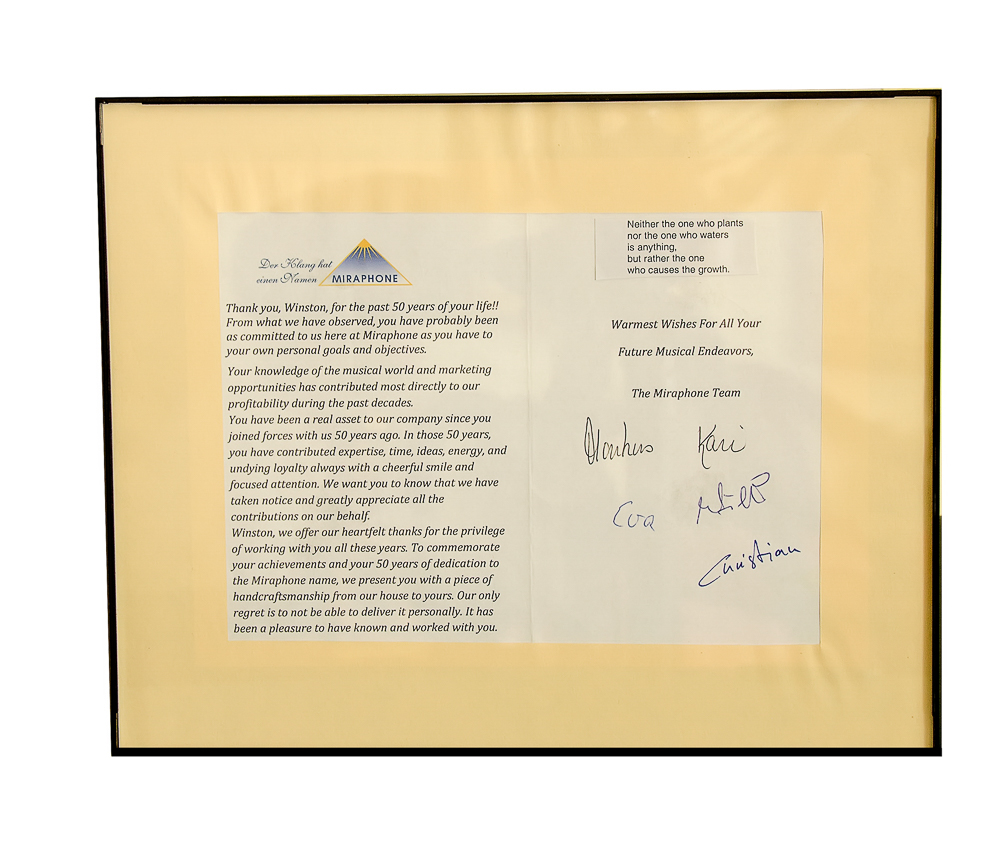 Der Klang hat
einen Namen
MIRAPHONE
Thank you, Winston, for the past 50 years of your life!!
From what we have observed, you have probably been
as committed to us here at Miraphone as you have to
your own personal goals and objectives.
Your knowledge of the musical world and marketing
opportunities has contributed most directly to our
profitability during the past decades.
You have been a real asset to our company since you
joined forces with us 50 years ago. In those 50 years,
you have contributed expertise, time, ideas, energy, and
undying loyalty always with a cheerful smile and
focused attention. We want you to know that we have
taken notice and greatly appreciate all the
contributions on our behalf.
Winston, we offer our heartfelt thanks for the privilege
of working with you all these years. To commemorate
your achievements and your 50 years of dedication to
the Miraphone name, we present you with a piece of
handcraftsmanship from our house to yours. Our only
regret is to not be able to deliver it personally. It has
been a pleasure to have known and worked with you.
Neither the one who plants
nor the one who waters
is anything,
but rather the one
who causes the growth.
Warmest Wishes For All Your
Future Musical Endeavors,
The Miraphone Team
Markus Kari
Eva
Christian